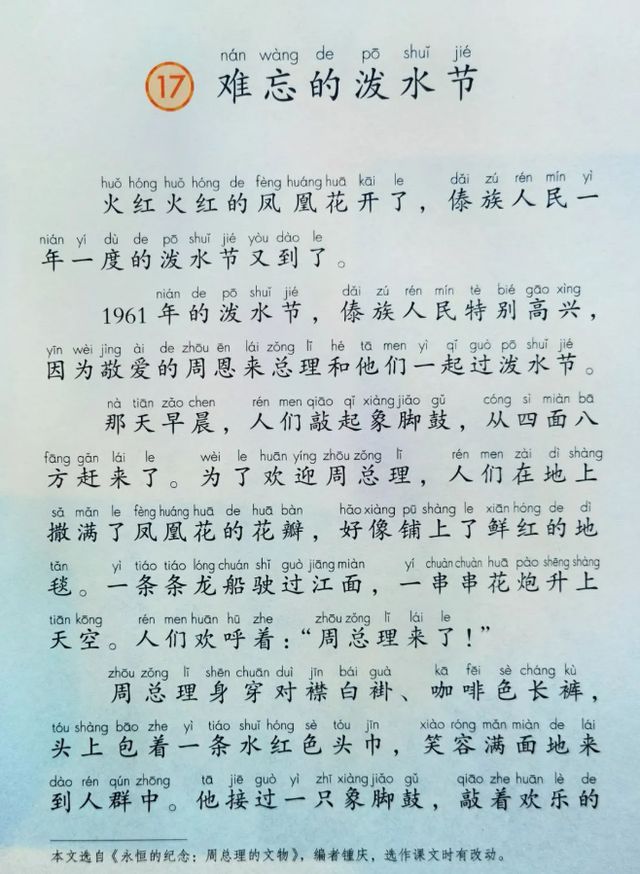 nán wàng de pō shuǐ jié
17 难忘的泼水节
huǒ hóng huǒ hóng de fèng huáng huā kāi le dǎi zú rén mín yì
火红火红的凤凰花开了，傣族人民一
nián yí dù de pō shuǐ jié yòu dào le
年一度的泼水节又到了。
nián de pō shuǐ jié dǎi zú rén mín tè bié gāo xìng
1961 年的泼水节，傣族人民特别高兴，
yīn wèi jìng ài de zhōu ēn lái zǒng lǐ hé tā men yì qǐ guò pō shuǐ jié
因为敬爱的周恩来总理和他们一起过泼水节。
nà tiān zǎo chen rén men qiāo qǐ xiàng jiǎo gǔ cóng sì miàn bā
那天早晨，人们敲起象脚鼓，从四面八
fāng gǎn lái le wèi le huān yíng zhōu zǒng lǐ rén men zài dì shàng
方赶来了。为了欢迎周总理，人们在地上
sǎ mǎn le fèng huáng huā de huā bàn hǎo xiàng pū shàng le xiān hóng de dì
撒满了凤凰花的花瓣，好像铺上了鲜红的地
tǎn yì tiáo tiáo lóng chuán shǐ guò jiāng miàn yí chuàn chuàn huā pào shēng shàng
毯。一条条龙船驶过江面，一串串花炮升上
tiān kōng rén men huān hū zhe zhōu zǒng lǐ lái le
天空。人们欢呼着：“周总理来了！”
zhōu zǒng lǐ shēn chuān duì jīn bái guà kā fēi sè cháng kù
周总理身穿对襟白褂、咖啡色长裤，
tóu shàng bāo zhe yì tiáo shuǐ hóng sè tóu jīn xiào róng mǎn miàn de lái
头上包着一条水红色头巾，笑容满面地来
dào rén qún zhōng tā jiē guò yì zhī xiàng jiǎo gǔ qiāo zhe huān lè de
到人群中。他接过一只象脚鼓，敲着欢乐的
本文选自《永恒的纪念：周总理的文物》，编者锺庆，选作课文时有改动。